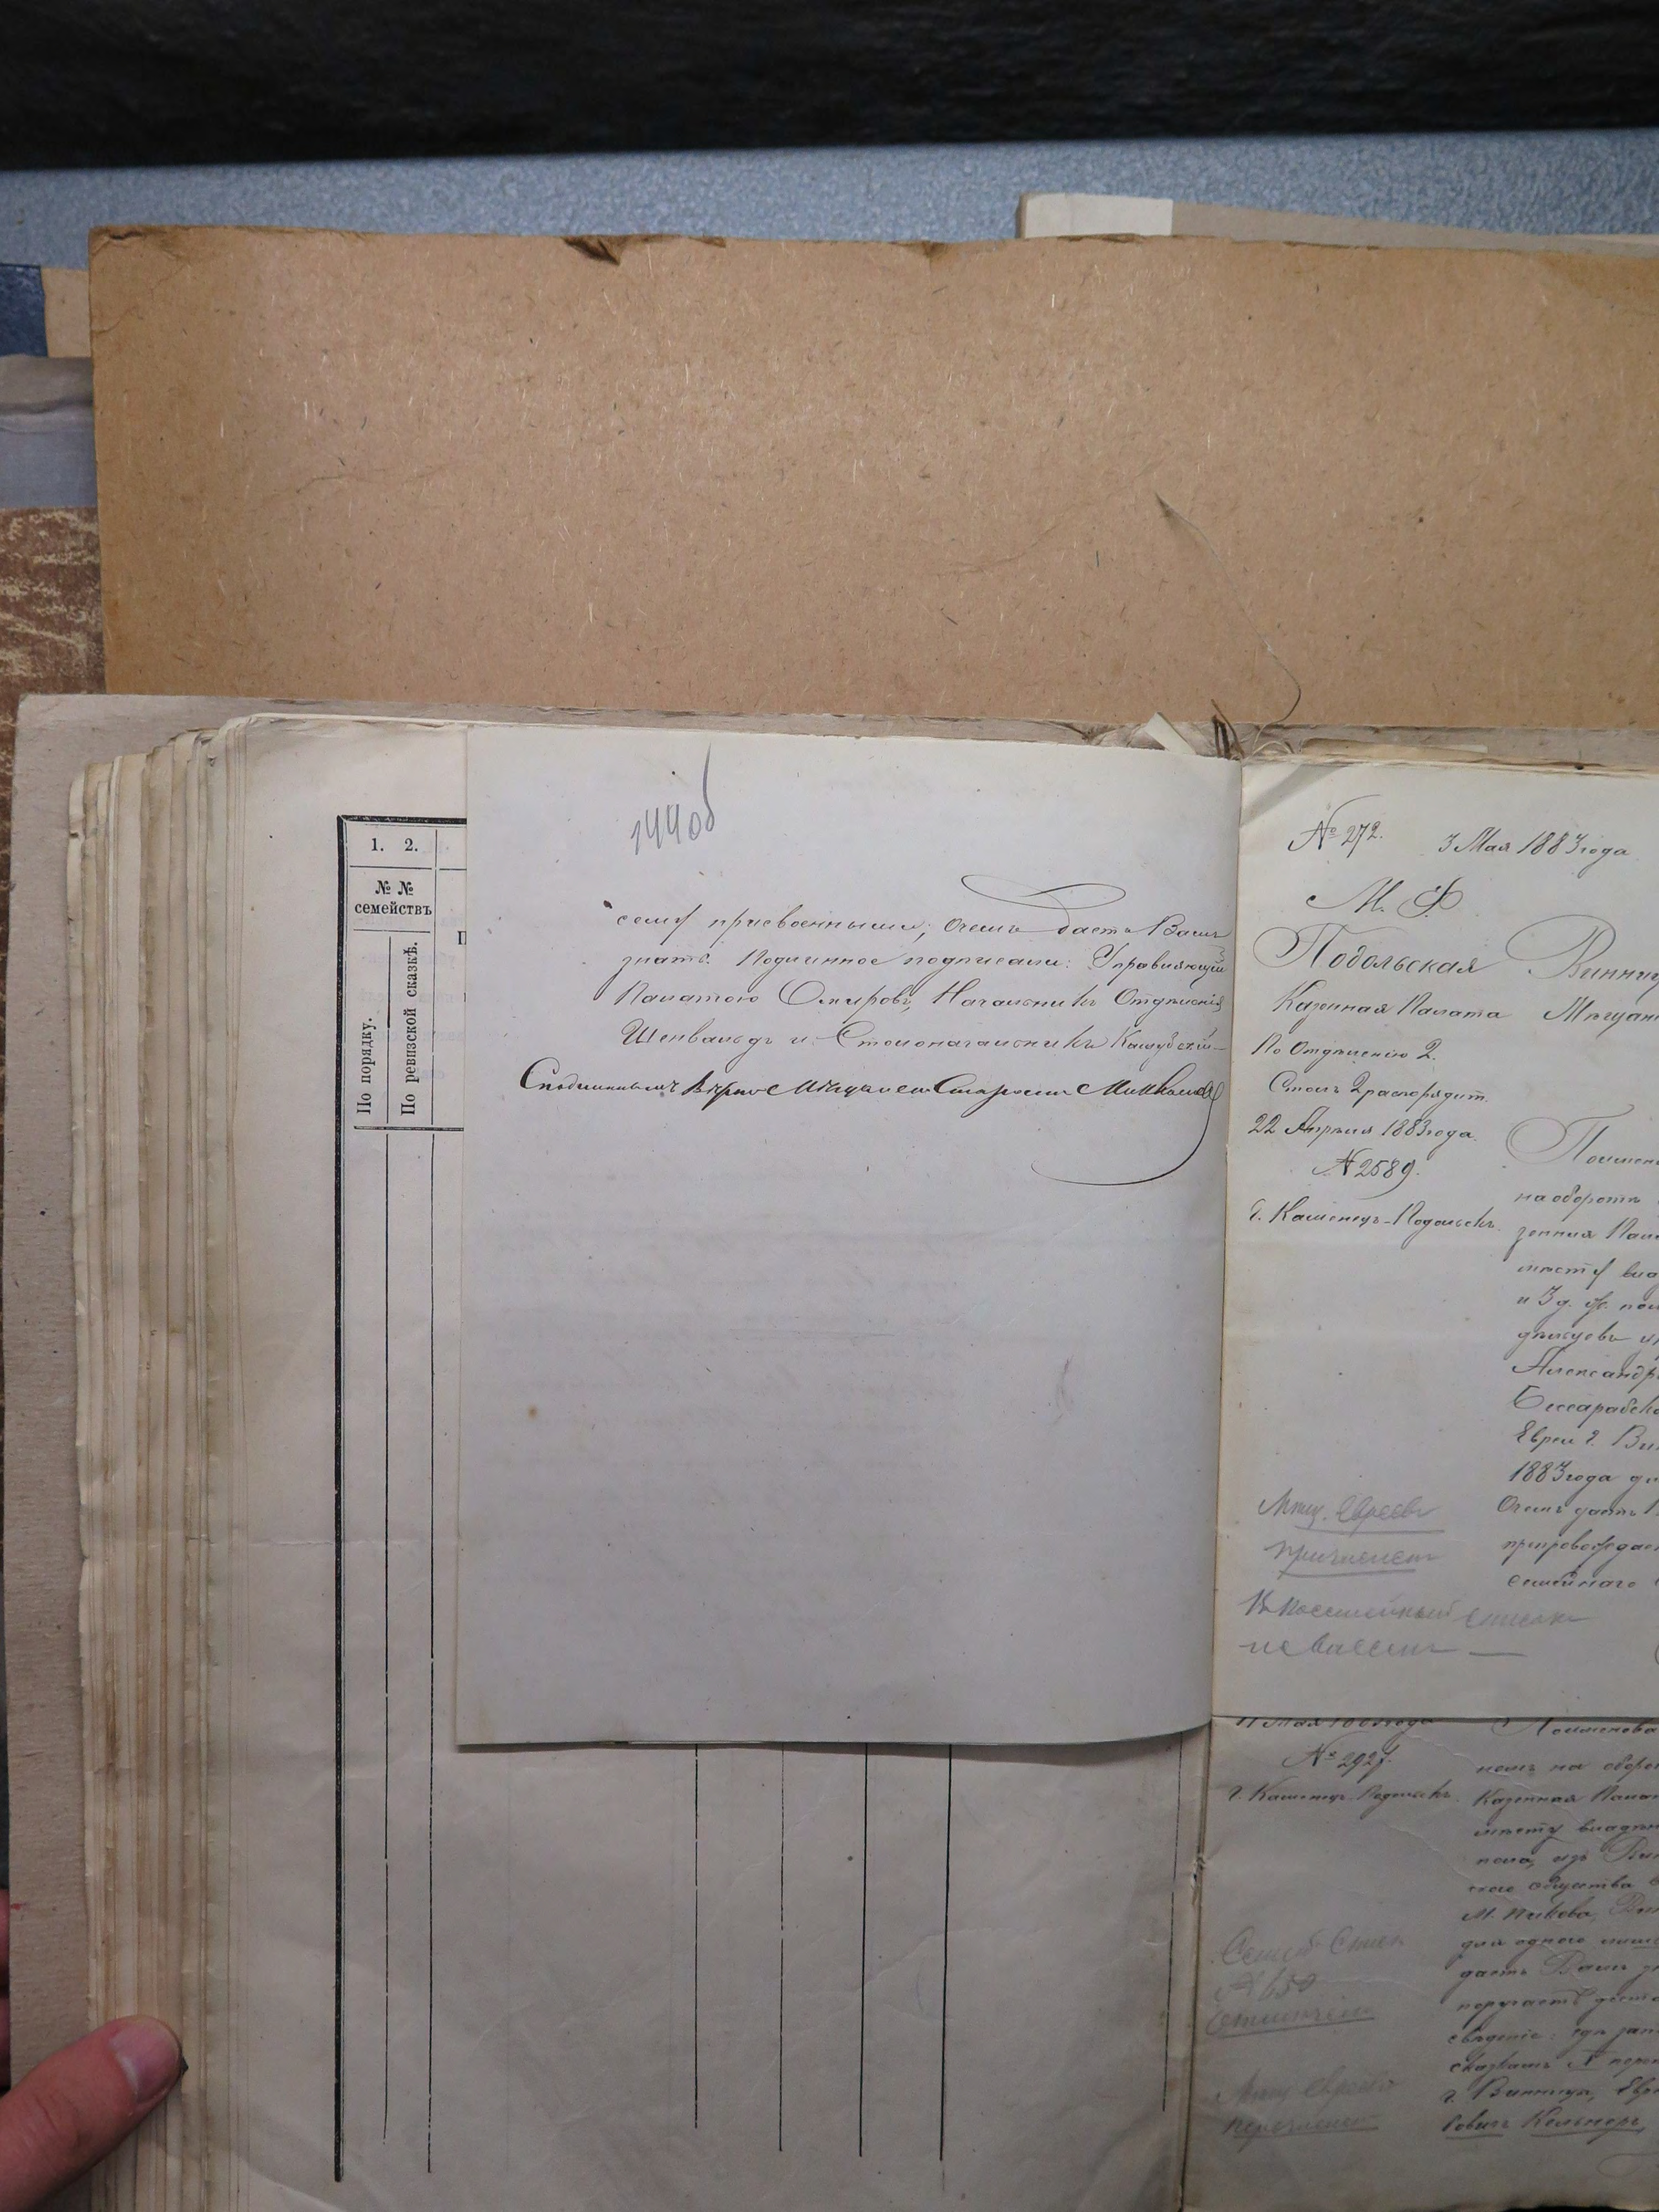 144об
1. 2.
№ №
семействъ
По порядку.
По ревизской сказкѣ.
П
сему присвоенными; о чемъ даетъ Вамъ
знать. Подлинное подписали: Управляющій
Палатою Омировъ, Начальникъ Отдѣленія
Шенвальдъ и Столоначальникъ Кашубскій
Съ подлиннымъ вѣрно Мѣщанскій Староста
№ 272. 3 Мая 1883 года
М. Ф.
Подольская
Казенная Палата
По Отдѣленію 2.
Столъ 2 распорядит.
22 Апрѣля 1883 года.
№ 2589.
г. Каменецъ-Подольскъ.
Винниц
Мѣщан
Поимен
на оборотѣ
зенная Пал
мѣсту вла
и 3 д. ж. пол
Александр
Бессарабско
Евреи г. Ви
1883 года
О чемъ даетъ
препровождае
семейнаго
Мѣщ. Евреевъ
причислен
Въ посемейный списокъ
не внесен
11 Мая 1883 года
№ 2927.
г. Каменецъ-Подольскъ.
Поименова
номъ на оборо
Казенная Пала
мѣсту владѣн
пола, изъ Вин
скаго общества
М. Пикова,
для одного
даетъ Вамъ
поручаетъ
свѣдѣніе: гдѣ
сказкамъ №
г. Винницы, Евр
Кельнеръ,
Семей. Списк
№ 650
Мѣщ. Евреевъ
перечислен